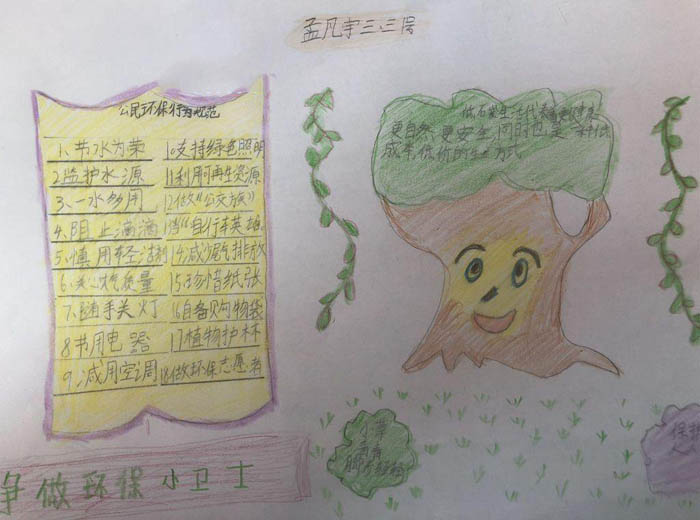 孟凡宇三、三层
公民环保行为规范
1、节水为荣
2监护水源
3、一水多用
4、阻止滴漏
5、慎用轻洁剂
6、关心炊质量
7、随手关灯
8节用电器
9、减用空调
10支持绿色照明
11利用再生资源
12做“公交族”
13当“自行车英雄
14减少尾气排放
15珍惜纸张
16自备购物袋
17植物护林
18做环保志愿者
低石炭生活代表着更健康
更自然 更安全 同时也是一种低
成本低价的生活方式
小草
保护
人人
争做环保小卫士